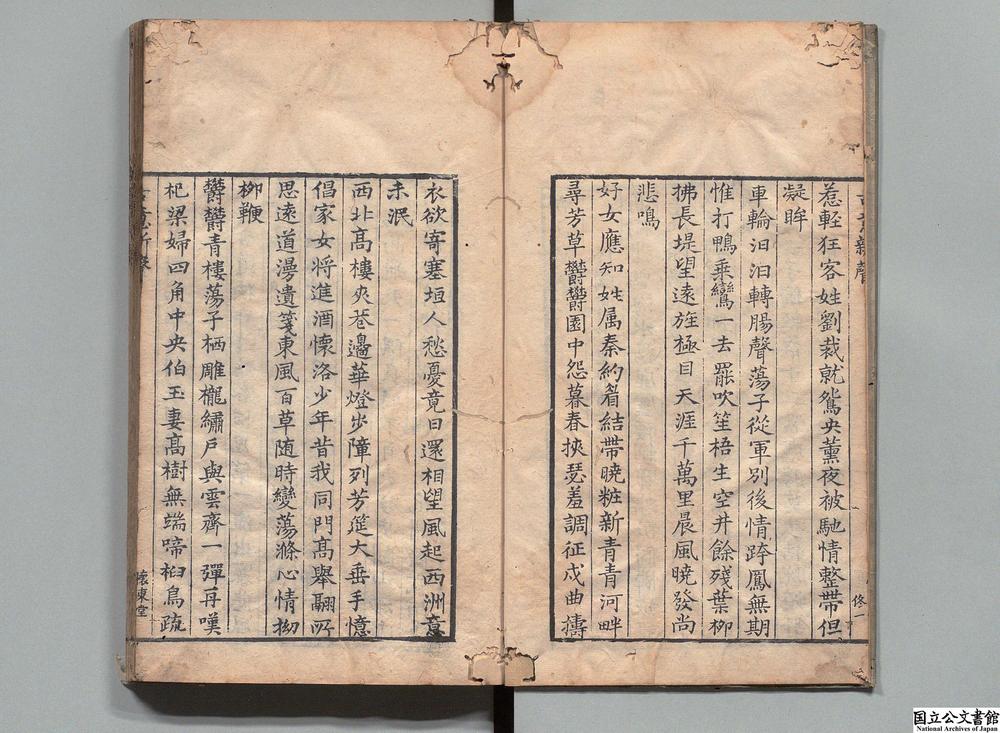 惹輕狂客姓劉裁就鴛央薰夜被馳情整帶但
凝眸
車輪汩汩轉腸聲蕩子從軍別後情跨鳳無期
惟打鴨乘鸞一去罷吹笙梧生空井餘殘葉柳
拂長堤望遠旌極目天涯千萬里晨風曉發尚
悲鳴
好女應知姓属秦約眉結帶曉粧新青青河畔
尋芳草欝欝園中怨暮春挾瑟羞調征戍曲擣
衣欲寄塞垣人愁憂竟日還相望風起西洲意
未泯
西北高樓夾巷邊華燈步障列芳筵大垂手憶
倡家女將進酒懷洛少年昔我同門高舉翮所
思遠道漫遺箋東風百草随時變蕩滌心情拗
柳鞭
欝欝青樓蕩子栖雕櫳繡戶與雲齊一彈再嘆
杞梁婦四角中央伯玉妻高樹無端啼桕烏疏
懷東堂
国立公文書館
National Archives of Japan